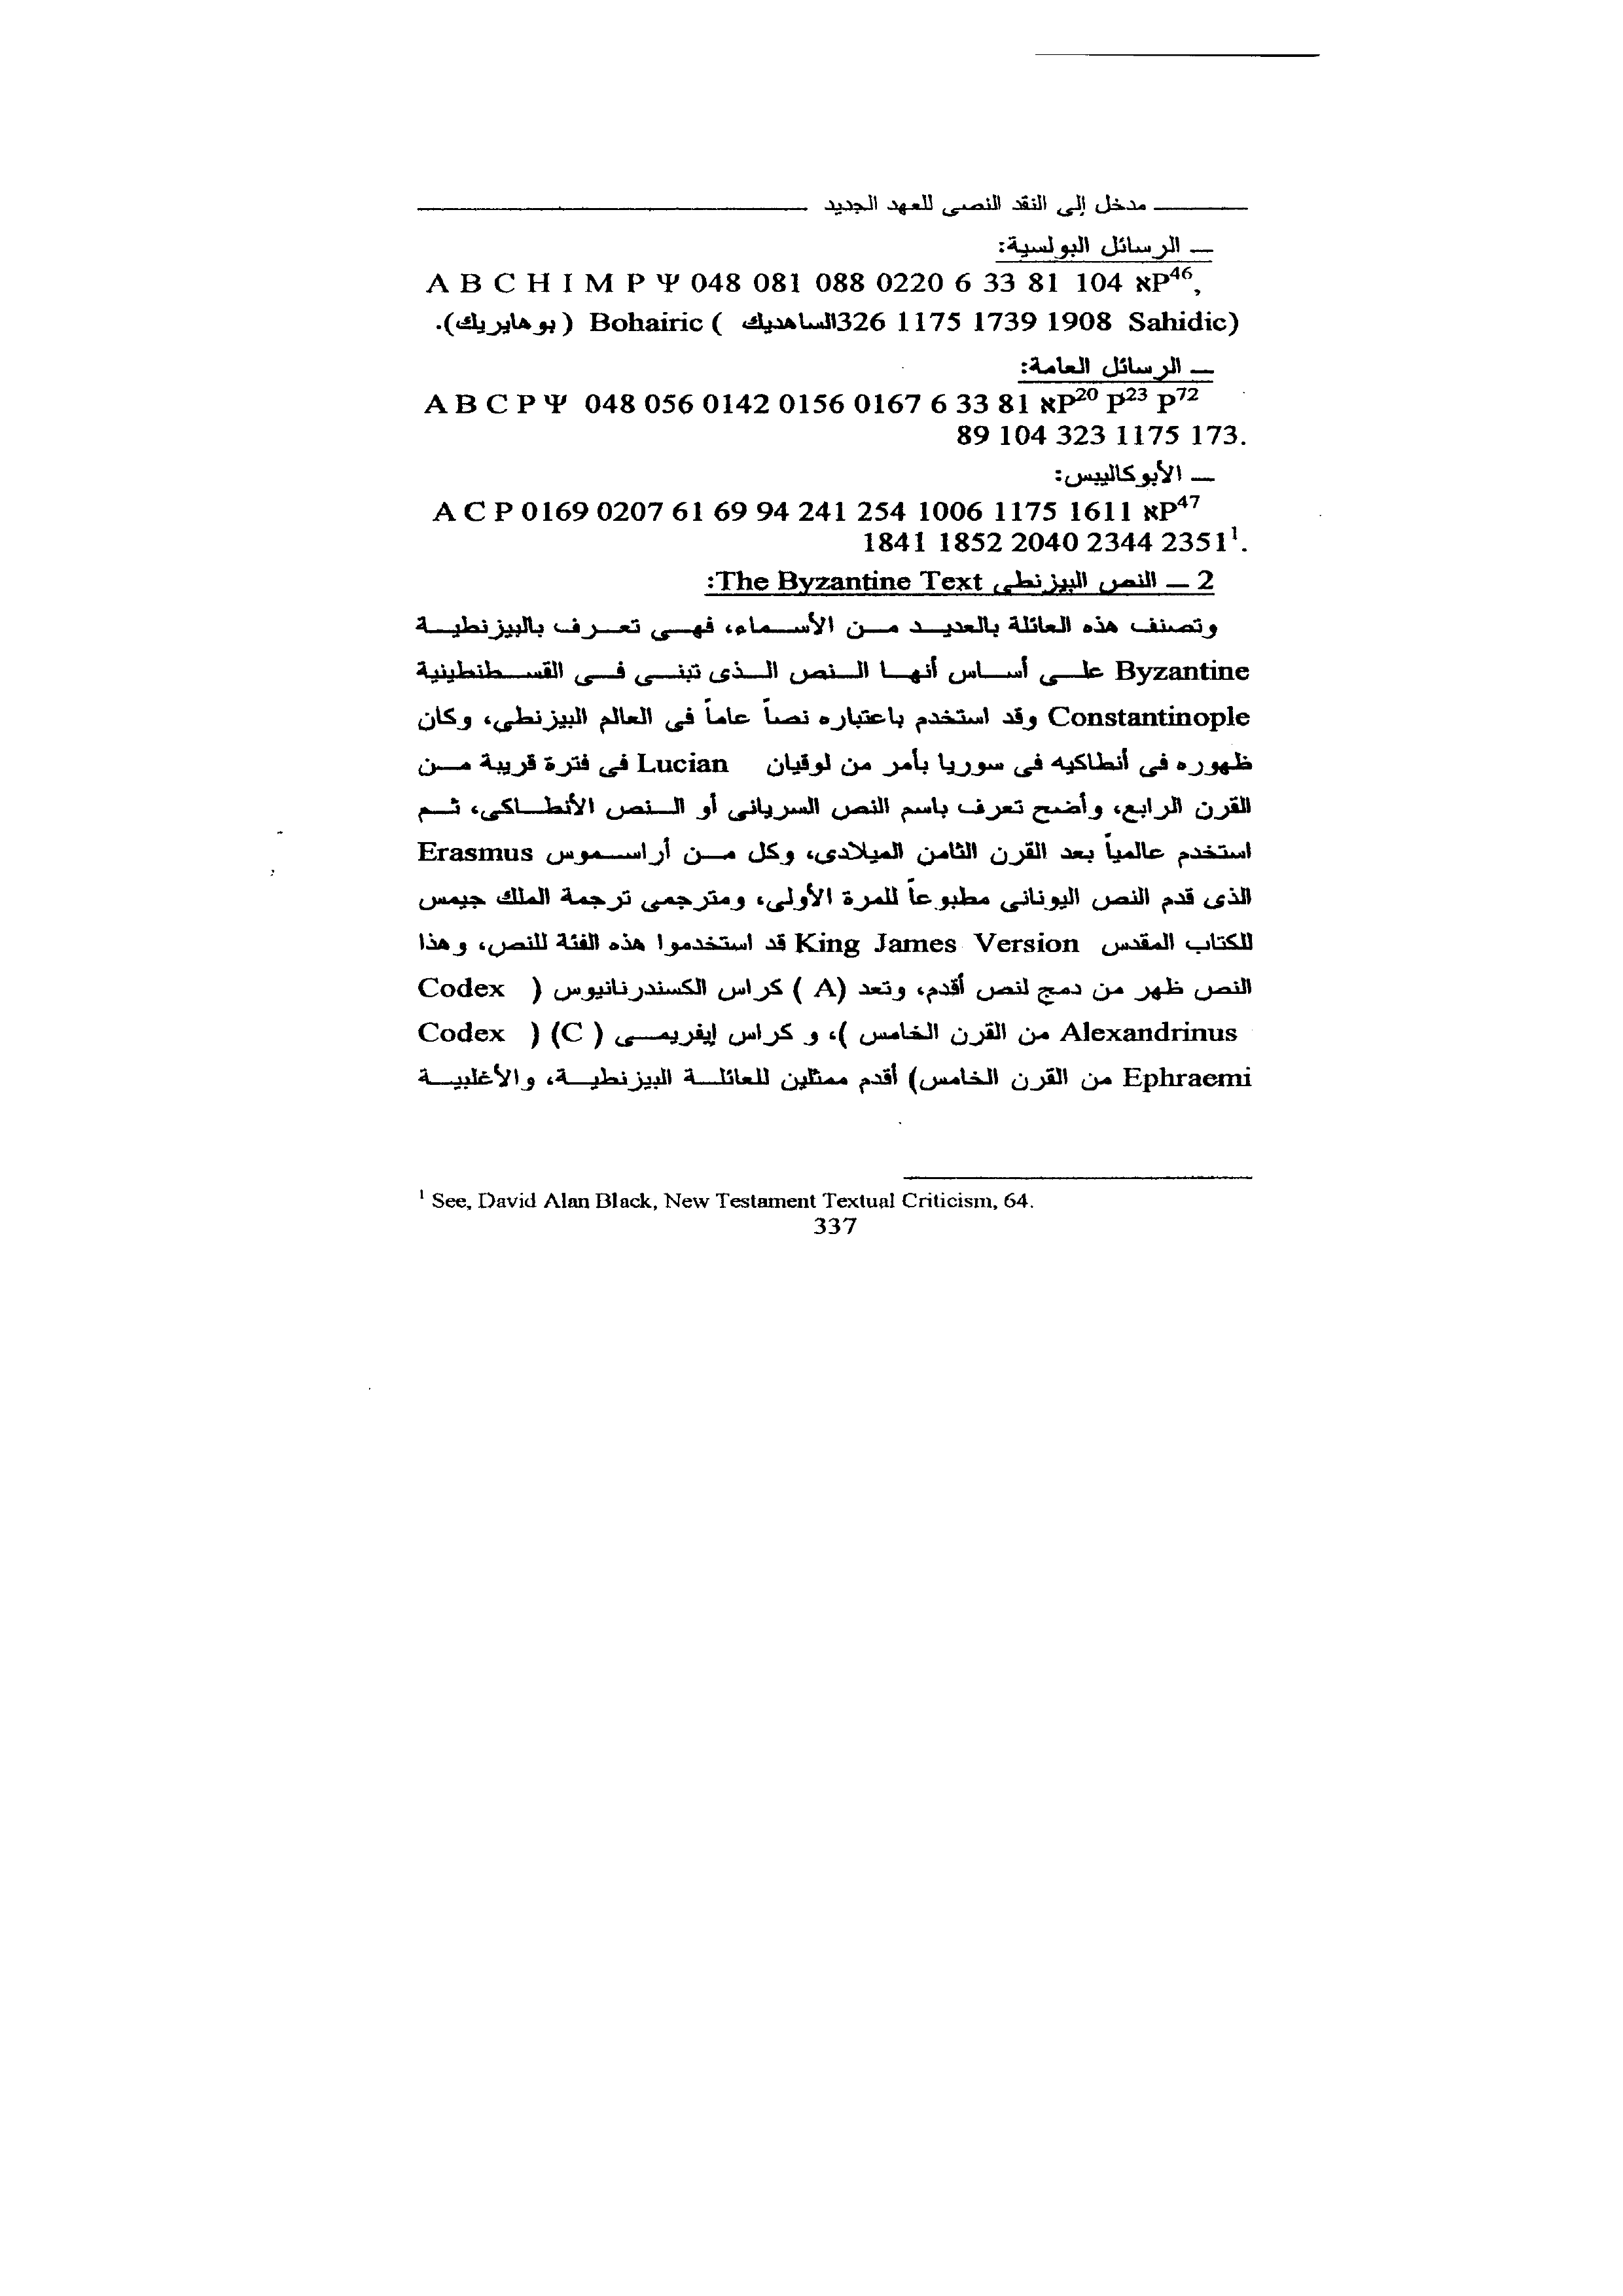 مدخل إلى النقد النصى للعهد الجديد
— الرسائل البولسية:
A B C H I M P Ψ 048 081 088 0220 6 33 81 104 אP⁴⁶,
326 1175 1739 1908 Sahidic) الساهديك ) Bohairic ( بوهايريك).
— الرسائل العامة:
A B C P Ψ 048 056 0142 0156 0167 6 33 81 אP²⁰ P²³ P⁷²
89 104 323 1175 173.
— الأبوكاليبس:
A C P 0169 0207 61 69 94 241 254 1006 1175 1611 אP⁴⁷
1841 1852 2040 2344 2351¹.
2 — النص البيزنطى The Byzantine Text:
وتصنف هذه العائلة بالعديد من الأسماء، فهى تعرف بالبيزنطية
Byzantine على أساس أنها النص الذى تبنى فى القسطنطينية
Constantinople وقد استخدم باعتباره نصاً عاماً فى العالم البيزنطى، وكان
ظهوره فى أنطاكيه فى سوريا بأمر من لوقيان Lucian فى فترة قريبة من
القرن الرابع، وأضح تعرف باسم النص السريانى أو النص الأنطاكى، ثم
استخدم عالمياً بعد القرن الثامن الميلادى، وكل من أراسموس Erasmus
الذى قدم النص اليونانى مطبوعاً للمرة الأولى، ومترجمى ترجمة الملك جيمس
للكتاب المقدس King James Version قد استخدموا هذه الفئة للنص، وهذا
النص ظهر من دمج لنص أقدم، وتعد (A ) كراس الكسندرنانيوس ( Codex
Alexandrinus من القرن الخامس )، و كراس إيفريمى ( C) ( Codex
Ephraemi من القرن الخامس) أقدم ممثلين للعائلة البيزنطية، والأغلبية
¹ See, David Alan Black, New Testament Textual Criticism, 64.
337